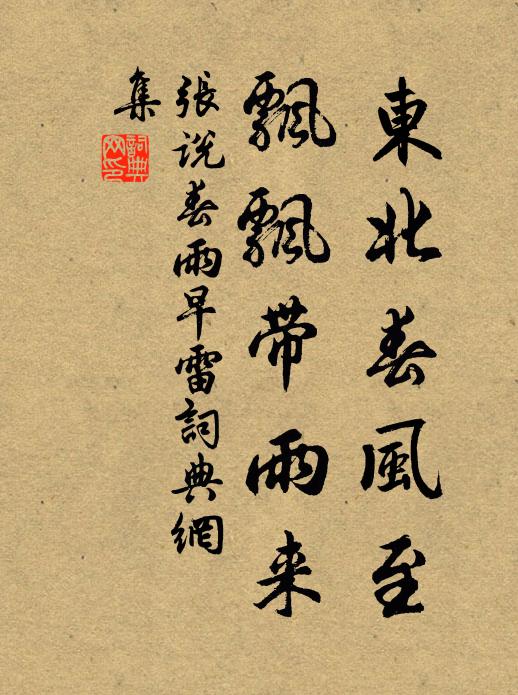 東北春風至
飄飄帶雨来
張説春雨早雷詞典網
集
詞典
网印